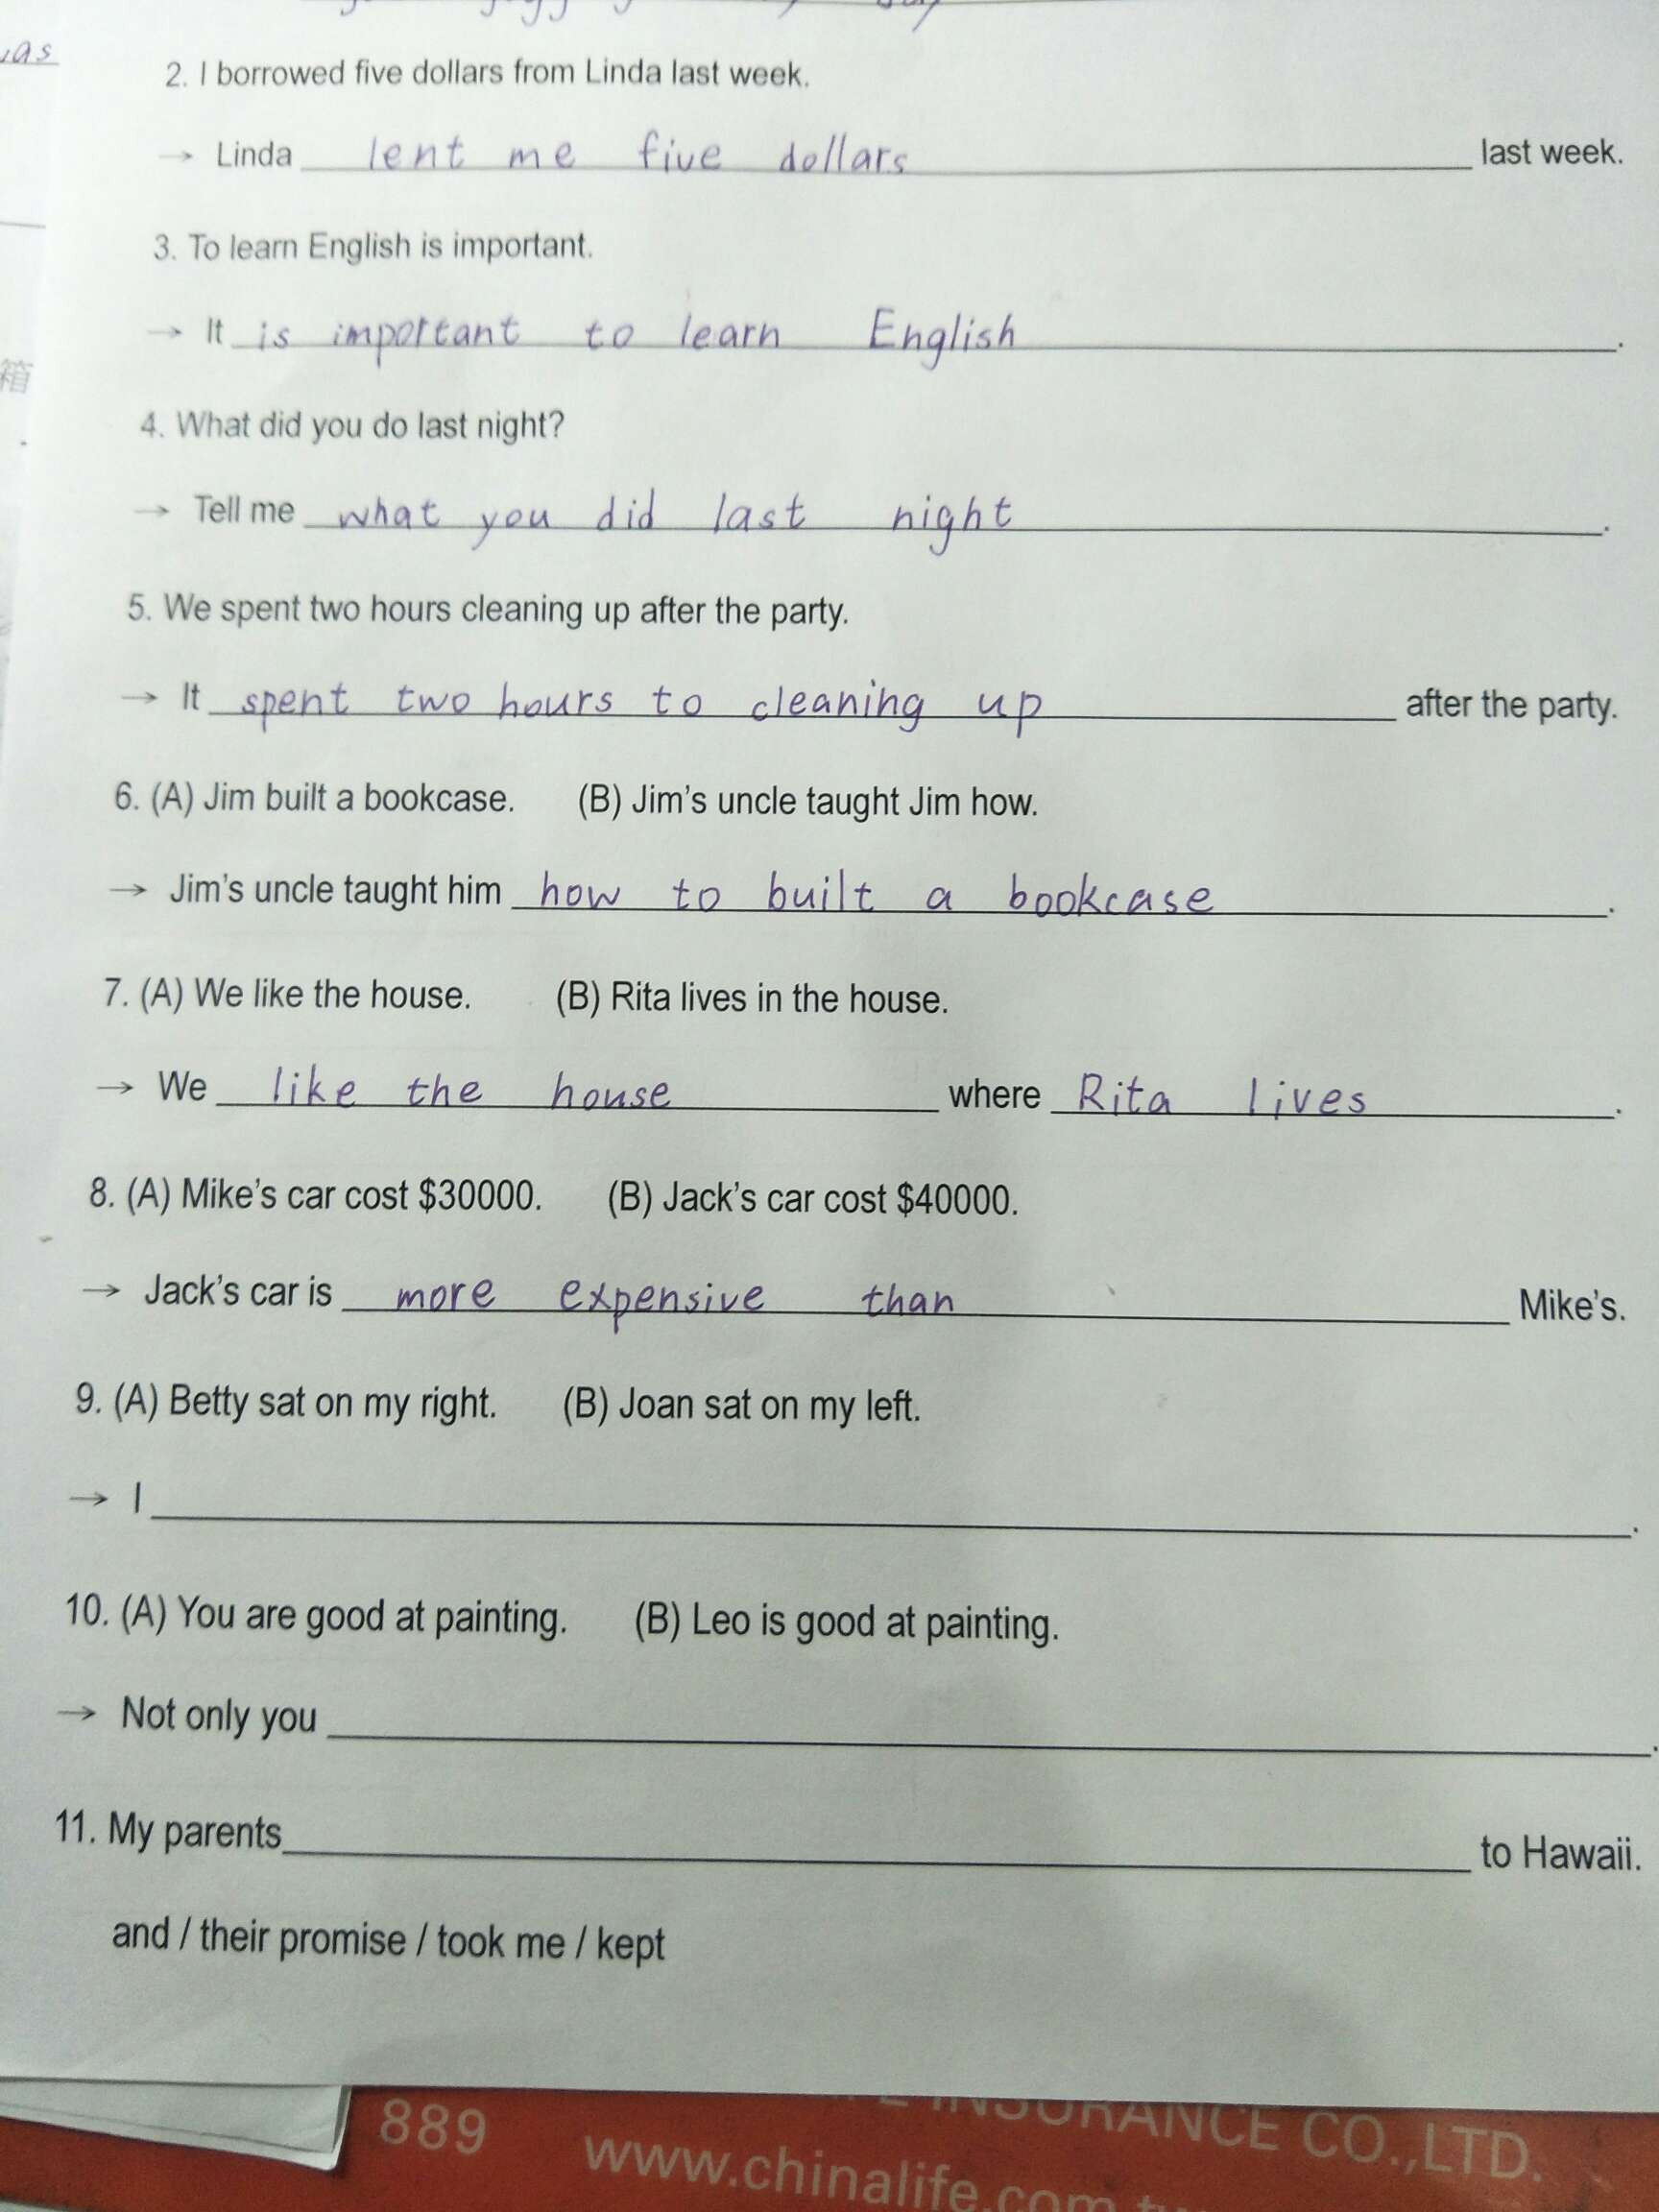 as
2. I borrowed five dollars from Linda last week.
→ Linda lent me five dollars last week.
3. To learn English is important.
→ It is important to learn English.
箱
4. What did you do last night?
→ Tell me what you did last night.
5. We spent two hours cleaning up after the party.
→ It spent two hours to cleaning up after the party.
6. (A) Jim built a bookcase. (B) Jim's uncle taught Jim how.
→ Jim's uncle taught him how to built a bookcase.
7. (A) We like the house. (B) Rita lives in the house.
→ We like the house where Rita lives.
8. (A) Mike's car cost $30000. (B) Jack's car cost $40000.
→ Jack's car is more expensive than Mike's.
9. (A) Betty sat on my right. (B) Joan sat on my left.
→ I ____.
10. (A) You are good at painting. (B) Leo is good at painting.
→ Not only you ____.
11. My parents ____ to Hawaii.
and / their promise / took me / kept
889 INSURANCE CO.,LTD.
www.chinalife.com.tw